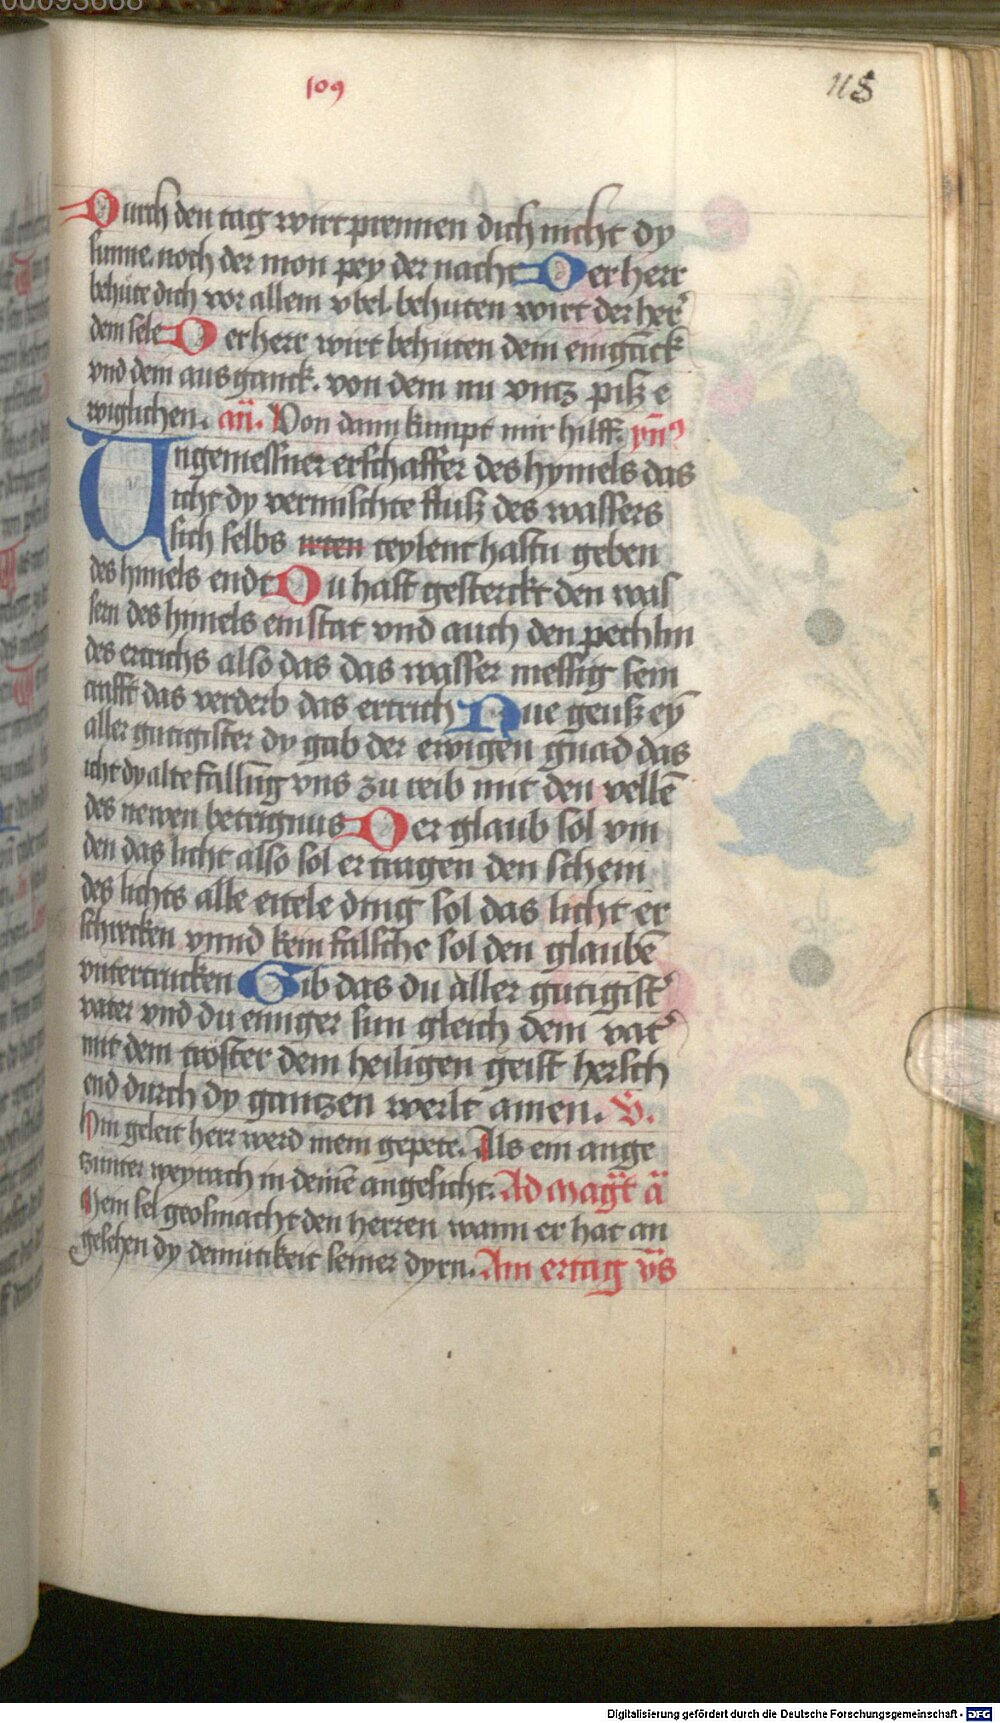 00093668
109
115
Durch den tag wirt prennen dich nicht dy
sunne. noch der mon pey der nacht Der herr
behüte dich vor allem vbel. behuten wirt der her
dein sele Der herr wirt behuten dein eingāck
vnd dein ausganck. von dem nu vntz pisz e
wiglichen. añ. Von dann kumpt mir hilff. ym̄
Ungemessner erschaffer des hymels das
icht dy vermischte flusz des wassers
sich selbs teylent hastu geben
des himels endt Du hast gesterckt den was
sern des himels ein stat vnd auch den pechlin
des ertrichs also das das wasser messig sein
aufft das verderb das ertrich Nue geusz eȳ
aller gutigister dy gab der ewigen gnad das
icht dy alte fallūg vns zu reib mit den vellē
des newen betrignus Der glaub sol vin
den das licht also sol er tragen den schein
des lichts alle eitele ding sol das licht er
schrecken vnnd kein falsche sol den glaubē
vntertrucken Gib das du aller gutigist
vater vnd du einiger sun gleich dem vat
mit dem troster dem heiligen geist hersch
end durch dy gantzen werlt amen. V.
Hin geleit herr werd mein gepete. Als ein ange
zunter weyrach in deinē angesicht. Ad magt̄ ā
Mein sel grosmacht den herren wann er hat an
gesehen dy demütikeit seiner dyrn. Am ertag v̄s
Digitalisierung gefördert durch die Deutsche Forschungsgemeinschaft - DFG